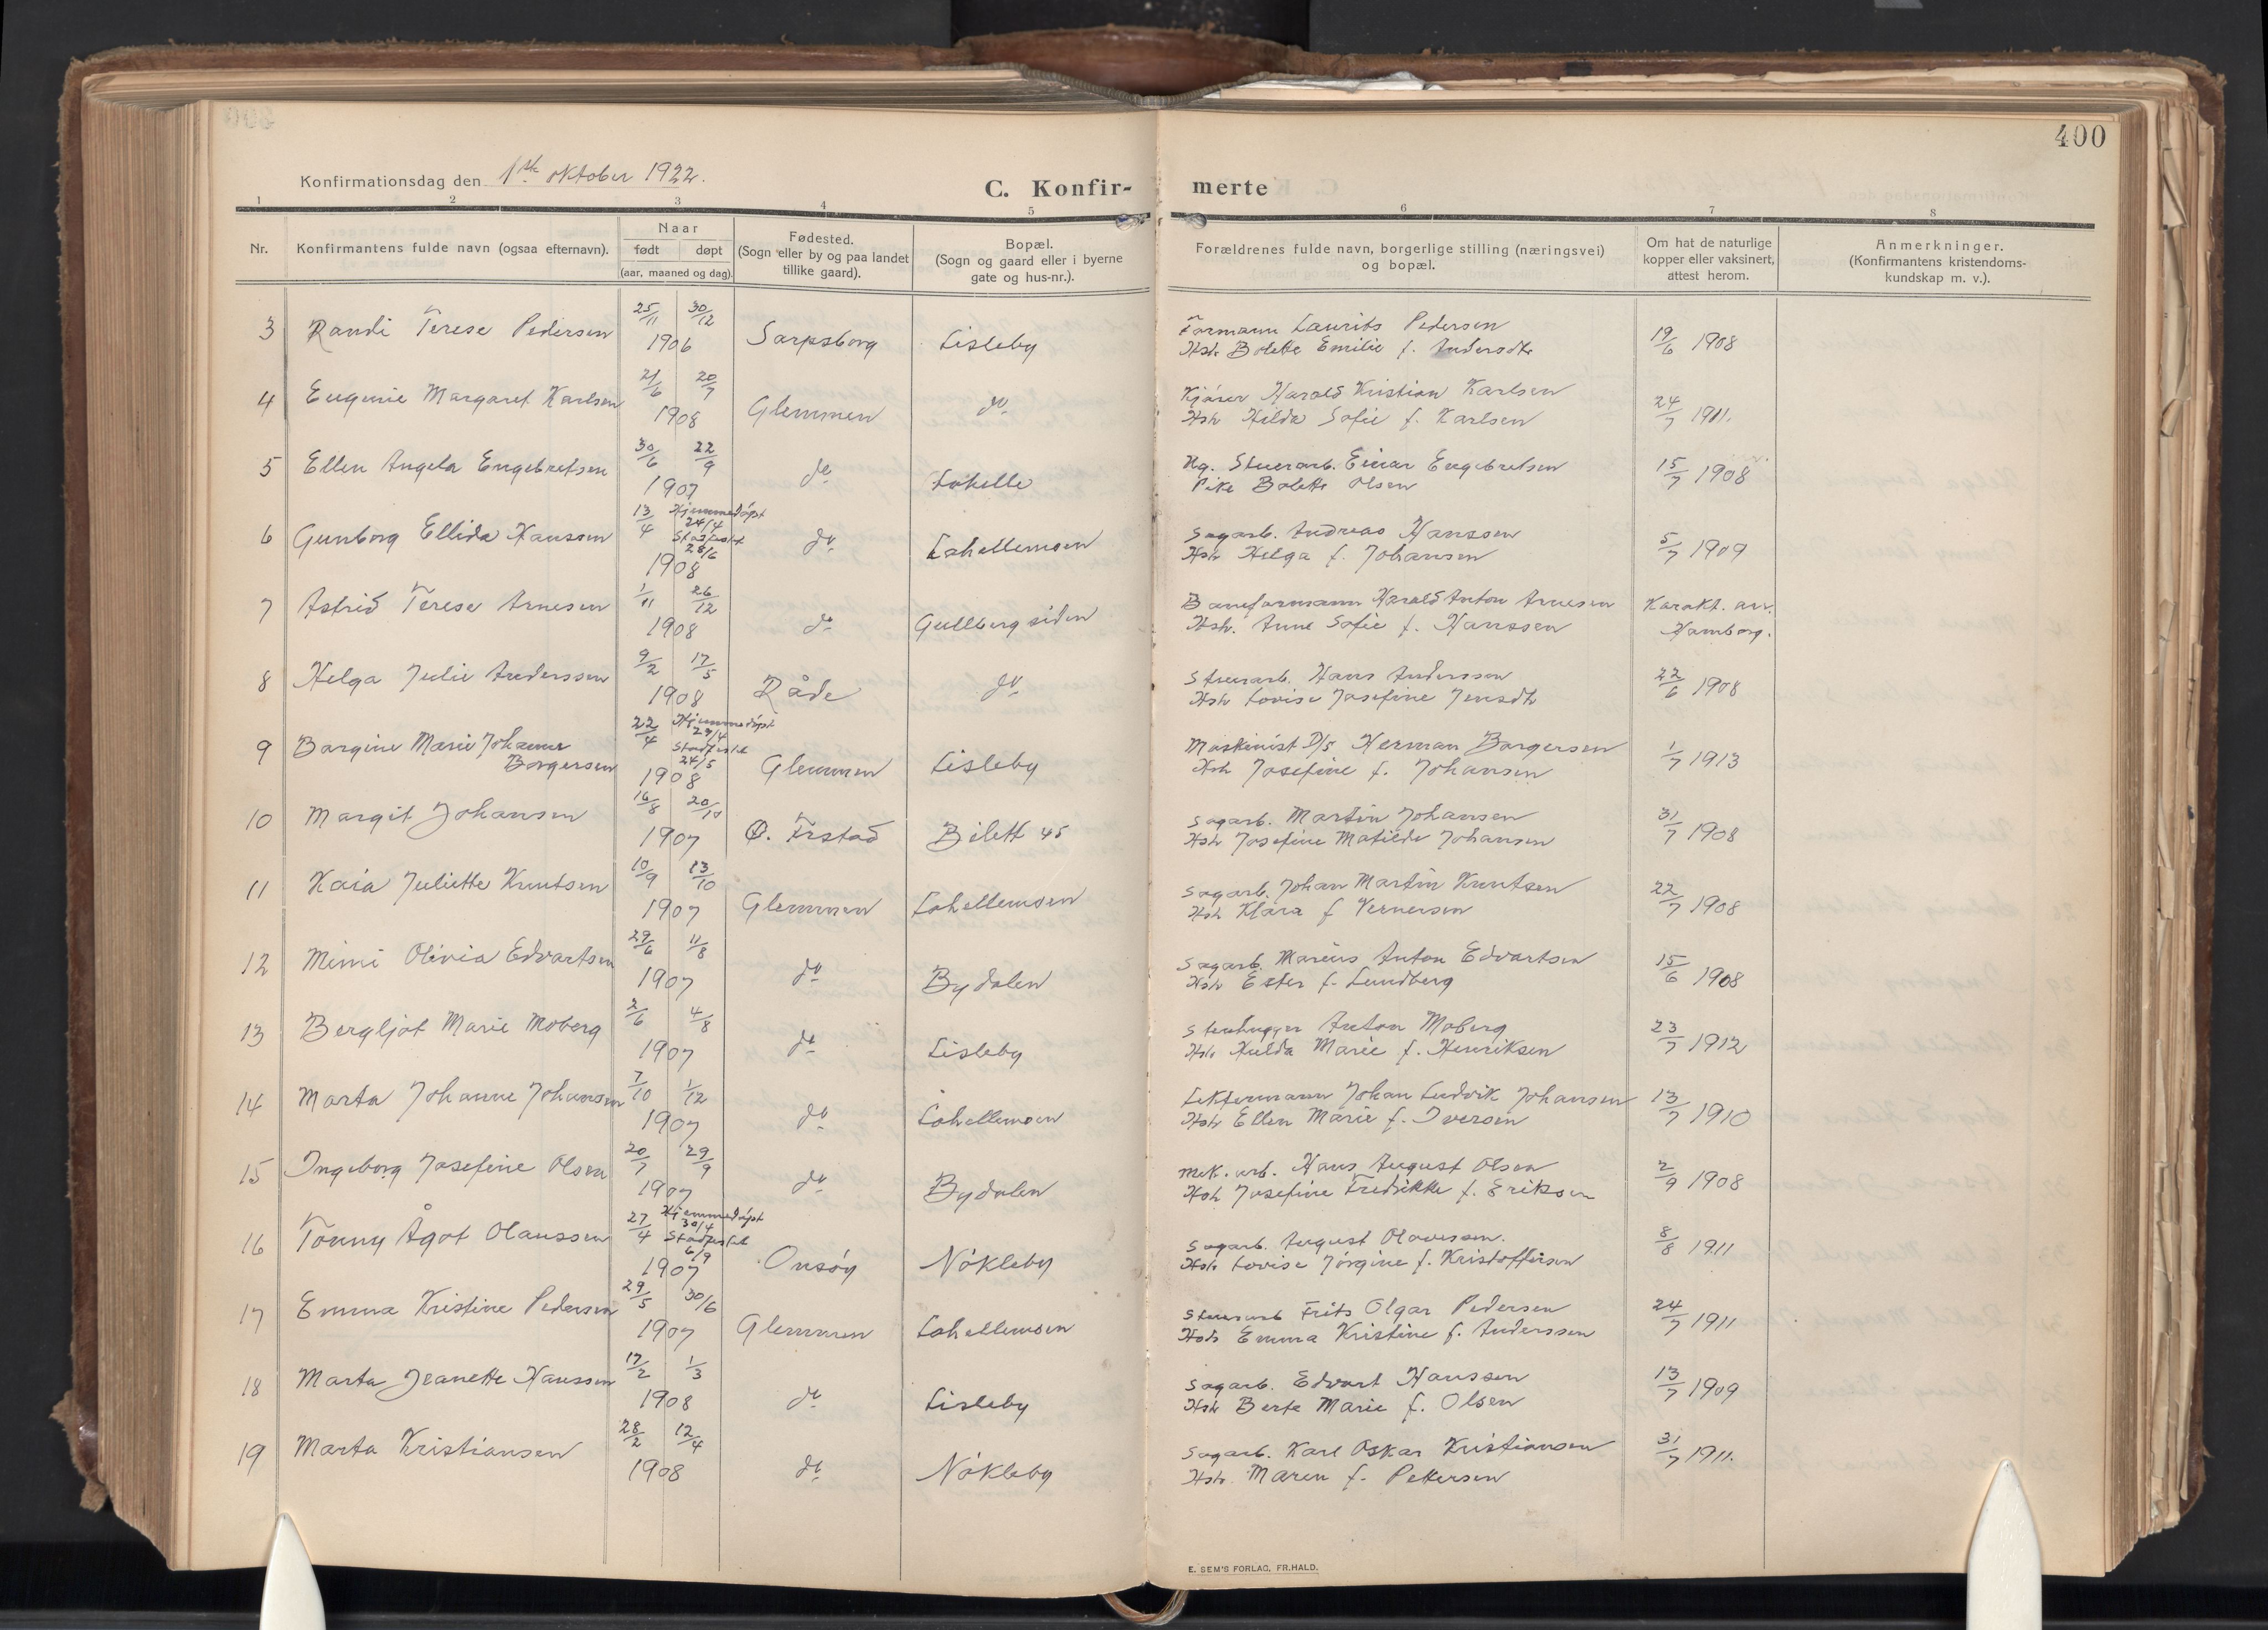 400
Konfirmationsdag den 1ste oktober 1922.
C. Konfir- merte
1 2 3 4 5 6 7 8
Nr.
Konfirmantens fulde navn (ogsaa efternavn).
Naar
født døpt
(aar, maaned og dag).
Fødested.
(Sogn eller by og paa landet
tillike gaard).
Bopæl.
(Sogn og gaard eller i byerne
gate og hus-nr.).
Forældrenes fulde navn, borgerlige stilling (næringsvei)
og bopæl.
Om hat de naturlige
kopper eller vaksinert,
attest herom.
Anmerkninger.
(Konfirmantens kristendoms-
kundskap m. v.).
3 Randi Terese Pedersen 25/11 30/12 1906 Sarpsborg Lisleby
Formann Laurits Pedersen
Hstr Bolette Emilie f. Andersdtr
19/6 1908
4 Eugenie Margaret Karlsen 21/6 20/7 1908 Glemmen do
Kjører Harald Kristian Karlsen
Hstr Hilda Sofie f. Karlsen
24/7 1911.
5 Ellen Angela Engebretsen 30/6 22/9 1907 do Lahelle
Ug. Stuerarb. Einar Engebretsen
Pike Bolette Olsen
15/7 1908
6 Gunborg Ellida Hanssen 13/4 Hjemmedøpt 24/4 Stadfestet 28/6 1908 do Lahellemoen
Sagarb. Andreas Hanssen
Hstr Helga f. Johansen
5/7 1909
7 Astrid Terese Arnesen 1/11 26/12 1908 do Gullbergsiden
Baneformann Harald Anton Arnesen
Hstr. Anne Sofie f. Hanssen
Karakt. arr.
Hamborg.
8 Helga Julie Anderssen 9/2 17/5 1908 Råde do
Stuerarb. Hans Anderssen
Hstr Lovise Josefine Jensdtr
22/6 1908
9 Borgine Marie Johanne
Borgersen 22/4 Hjemmedøpt 23/4 Stadfestet 24/5 1908 Glemmen Lisleby
Maskinist D/S Herman Borgersen
Hstr Josefine f. Johansen
1/7 1913
10 Margit Johansen 16/8 20/10 1907 Ø. Frstad Bilett 45
Sagarb. Martin Johansen
Hstr Josefine Matilde Johansen
31/7 1908
11 Kaia Juliette Knutsen 10/9 13/10 1907 Glemmen Lahellemoen
Sagarb. Johan Martin Knutsen
Hstr Klara f Vernersen
22/7 1908
12 Mimi Olivia Edvartsen 29/6 11/8 1907 do Bydalen
Sagarb. Marius Anton Edvartsen
Hstr Ester f. Lundberg
15/6 1908
13 Bergljot Marie Moberg 2/6 4/8 1907 do Lisleby
Stenhugger Anton Moberg
Hstr Hulda Marie f. Henriksen
23/7 1912
14 Marta Johanne Johansen 7/10 1/12 1907 do Lahellemoen
Lektermann Johan Ludvik Johansen
Hstr Ellen Marie f. Iversen
13/7 1910
15 Ingeborg Josefine Olsen 20/7 29/9 1907 do Bydalen
Mek. arb. Hans August Olsen
Hstr Josefine Fredrikke f. Eriksen
2/9 1908
16 Tonny Ågot Olaussen 27/4 Hjemmedøpt 30/4 Stadfestet 6/9 1907 Onsøy Nøkleby
Sagarb. August Olaussen.
Hstr Lovise Jørgine f. Kristoffersen
8/8 1911
17 Emma Kristine Pedersen 29/5 30/6 1907 Glemmen Lahellemoen
Stuerarb Frits Olgar Pedersen
Hstr Emma Kristine f. Anderssen
24/7 1911
18 Marta Jeanette Hanssen 17/2 1/3 1908 do Lisleby
Sagarb. Edvart Hanssen
Hstr Berte Marie f. Olsen
13/7 1909
19 Marta Kristiansen 28/2 12/4 1908 do Nøkleby
Sagarb. Karl Oskar Kristiansen
Hstr. Maren f. Pettersen
31/7 1911.
E. SEM'S FORLAG, FR.HALD.